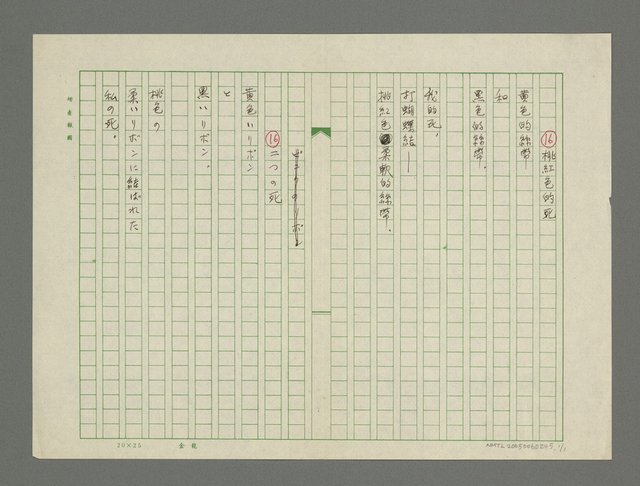 ⑯桃紅色的死
黃色的絲帶
和
黑色的絲帶.
我的死,
打蝴蝶結—
桃紅色柔軟的絲帶.
ピンクのリボン
⑯二つの死
黄色いリボン
と
黒いリボン。
桃色の
柔いリボンに結ばれた
私の死。
20×25
金龍
NMTL20050060245
1/1